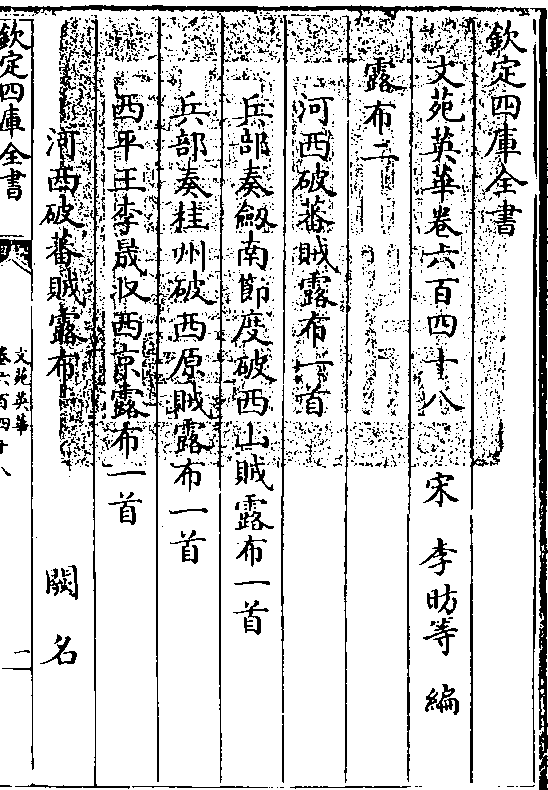 欽定四庫全書
文苑英華卷六百四十八 宋 李昉等 編
露布二
河西破蕃賊露布一首
兵部奏劔南節度破西山賊露布一首
兵部奏桂州破西原賊露布一首
西平王李晟收西京露布一首
河西破蕃賊露布 闕名
欽定四庫全書
文苑英華
卷六百四十八